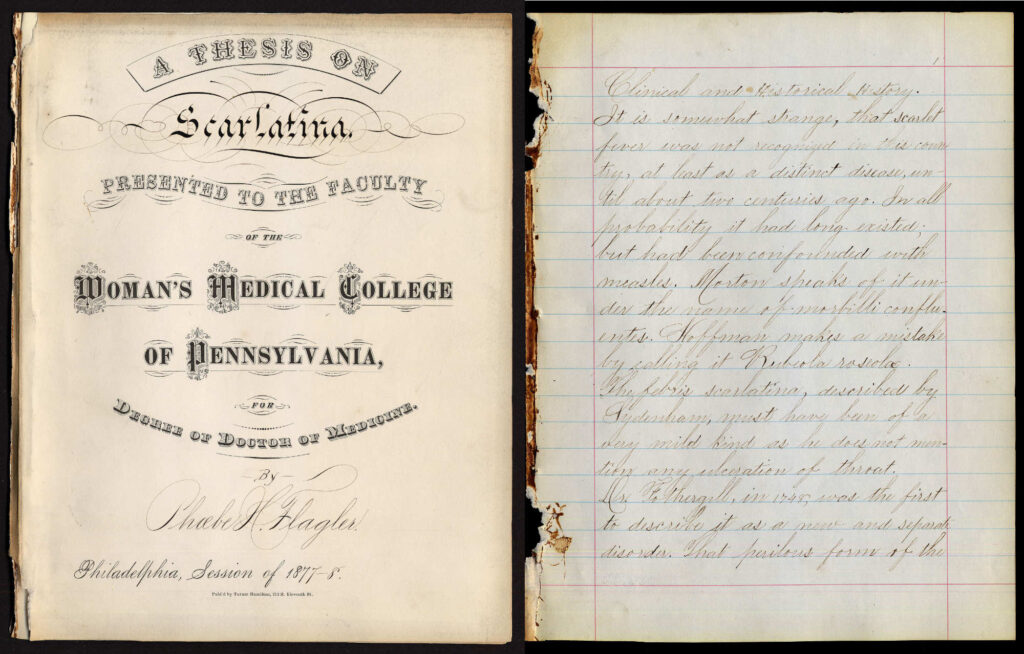 A THESIS ON
Scarlatina.
PRESENTED TO THE FACULTY
OF THE
WOMAN'S MEDICAL COLLEGE
OF PENNSYLVANIA,
FOR
DEGREE OF DOCTOR OF MEDICINE.
By
Phœbe H. Flagler.
Philadelphia, Session of 1877-8.
Pub'd by Turner Hamilton,
1
Clinical and Historical History.
It is somewhat strange, that scarlet
fever was not recognized in this coun
try, at least as a distinct disease, un-
til about two centuries ago. In all
probability it had long existed;
but had been confounded with
measles. Morton speaks of it un-
der the name of morbilli conflu-
entes. Hoffman makes a mistake
by calling it Rubeola roseola.
The febris scarlatina, described by
Sydenham, must have been of a
very mild kind as he does not men-
tion any ulceration of throat.
Dr. Fothergill, in 1748, was the first
to describe it as a new and separate
disorder. That perilous form of the